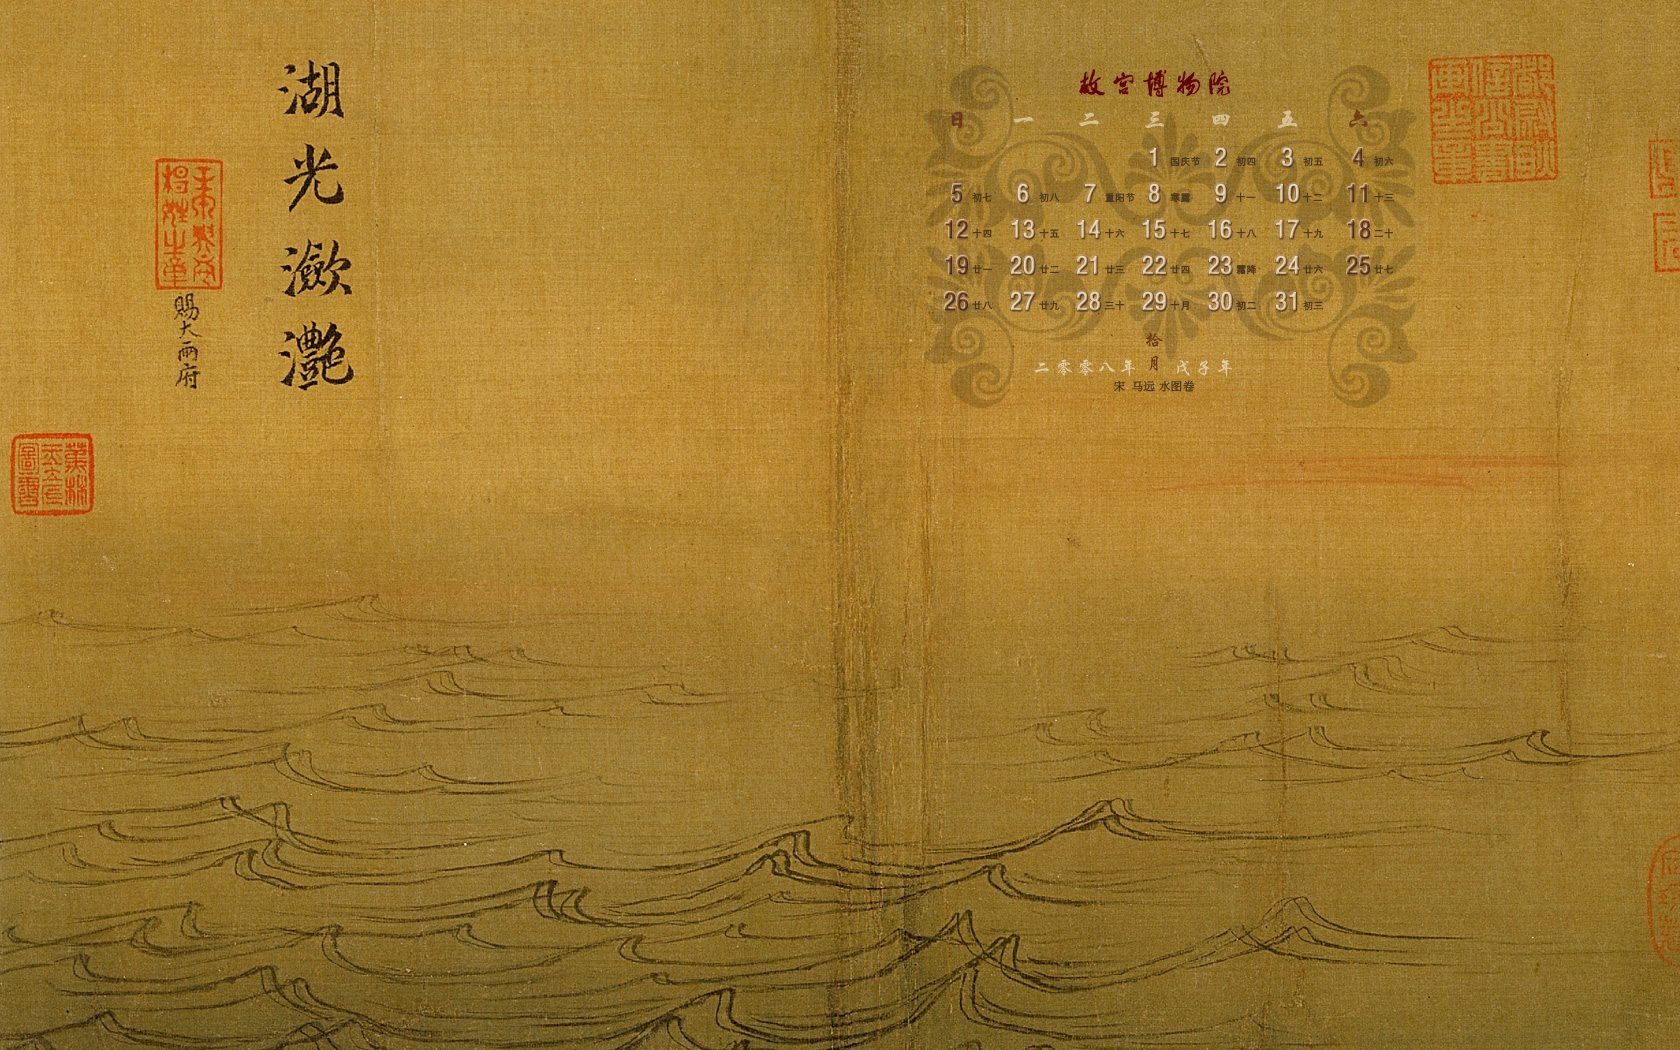 湖光瀲灩
賜大兩府
故宫博物院
日 一 二 三 四 五 六
1 国庆节 2 初四 3 初五 4 初六
5 初七 6 初八 7 重阳节 8 寒露 9 十一 10 十二 11 十三
12 十四 13 十五 14 十六 15 十七 16 十八 17 十九 18 二十
19 廿一 20 廿二 21 廿三 22 廿四 23 霜降 24 廿六 25 廿七
26 廿八 27 廿九 28 三十 29 十月 30 初二 31 初三
拾月
二零零八年 戊子年
宋 马远 水图卷